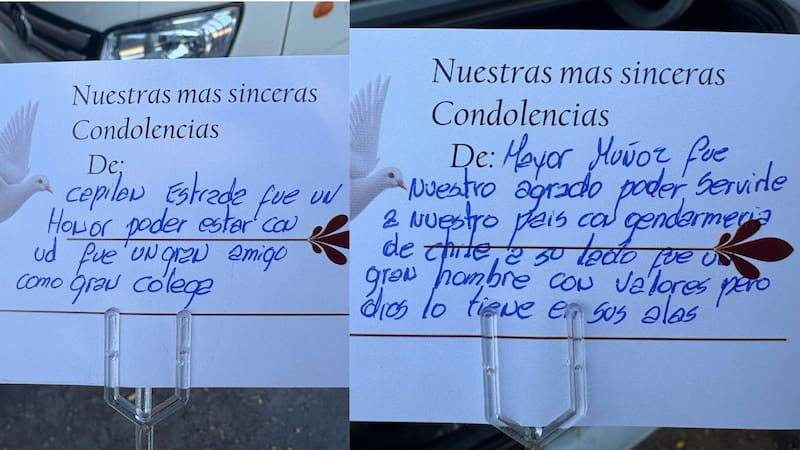 Nuestras mas sinceras
Condolencias
De:
Capitan Estrada fue un
Honor poder estar con
ud fue un gran amigo
como gran colega
Nuestras mas sinceras
Condolencias
De: Mayor Muñoz fue
Nuestro agrado poder servirle
a nuestro pais con gendarmeria
de chile a su lado fue un
gran hombre con valores pero
dios lo tiene en sus alas